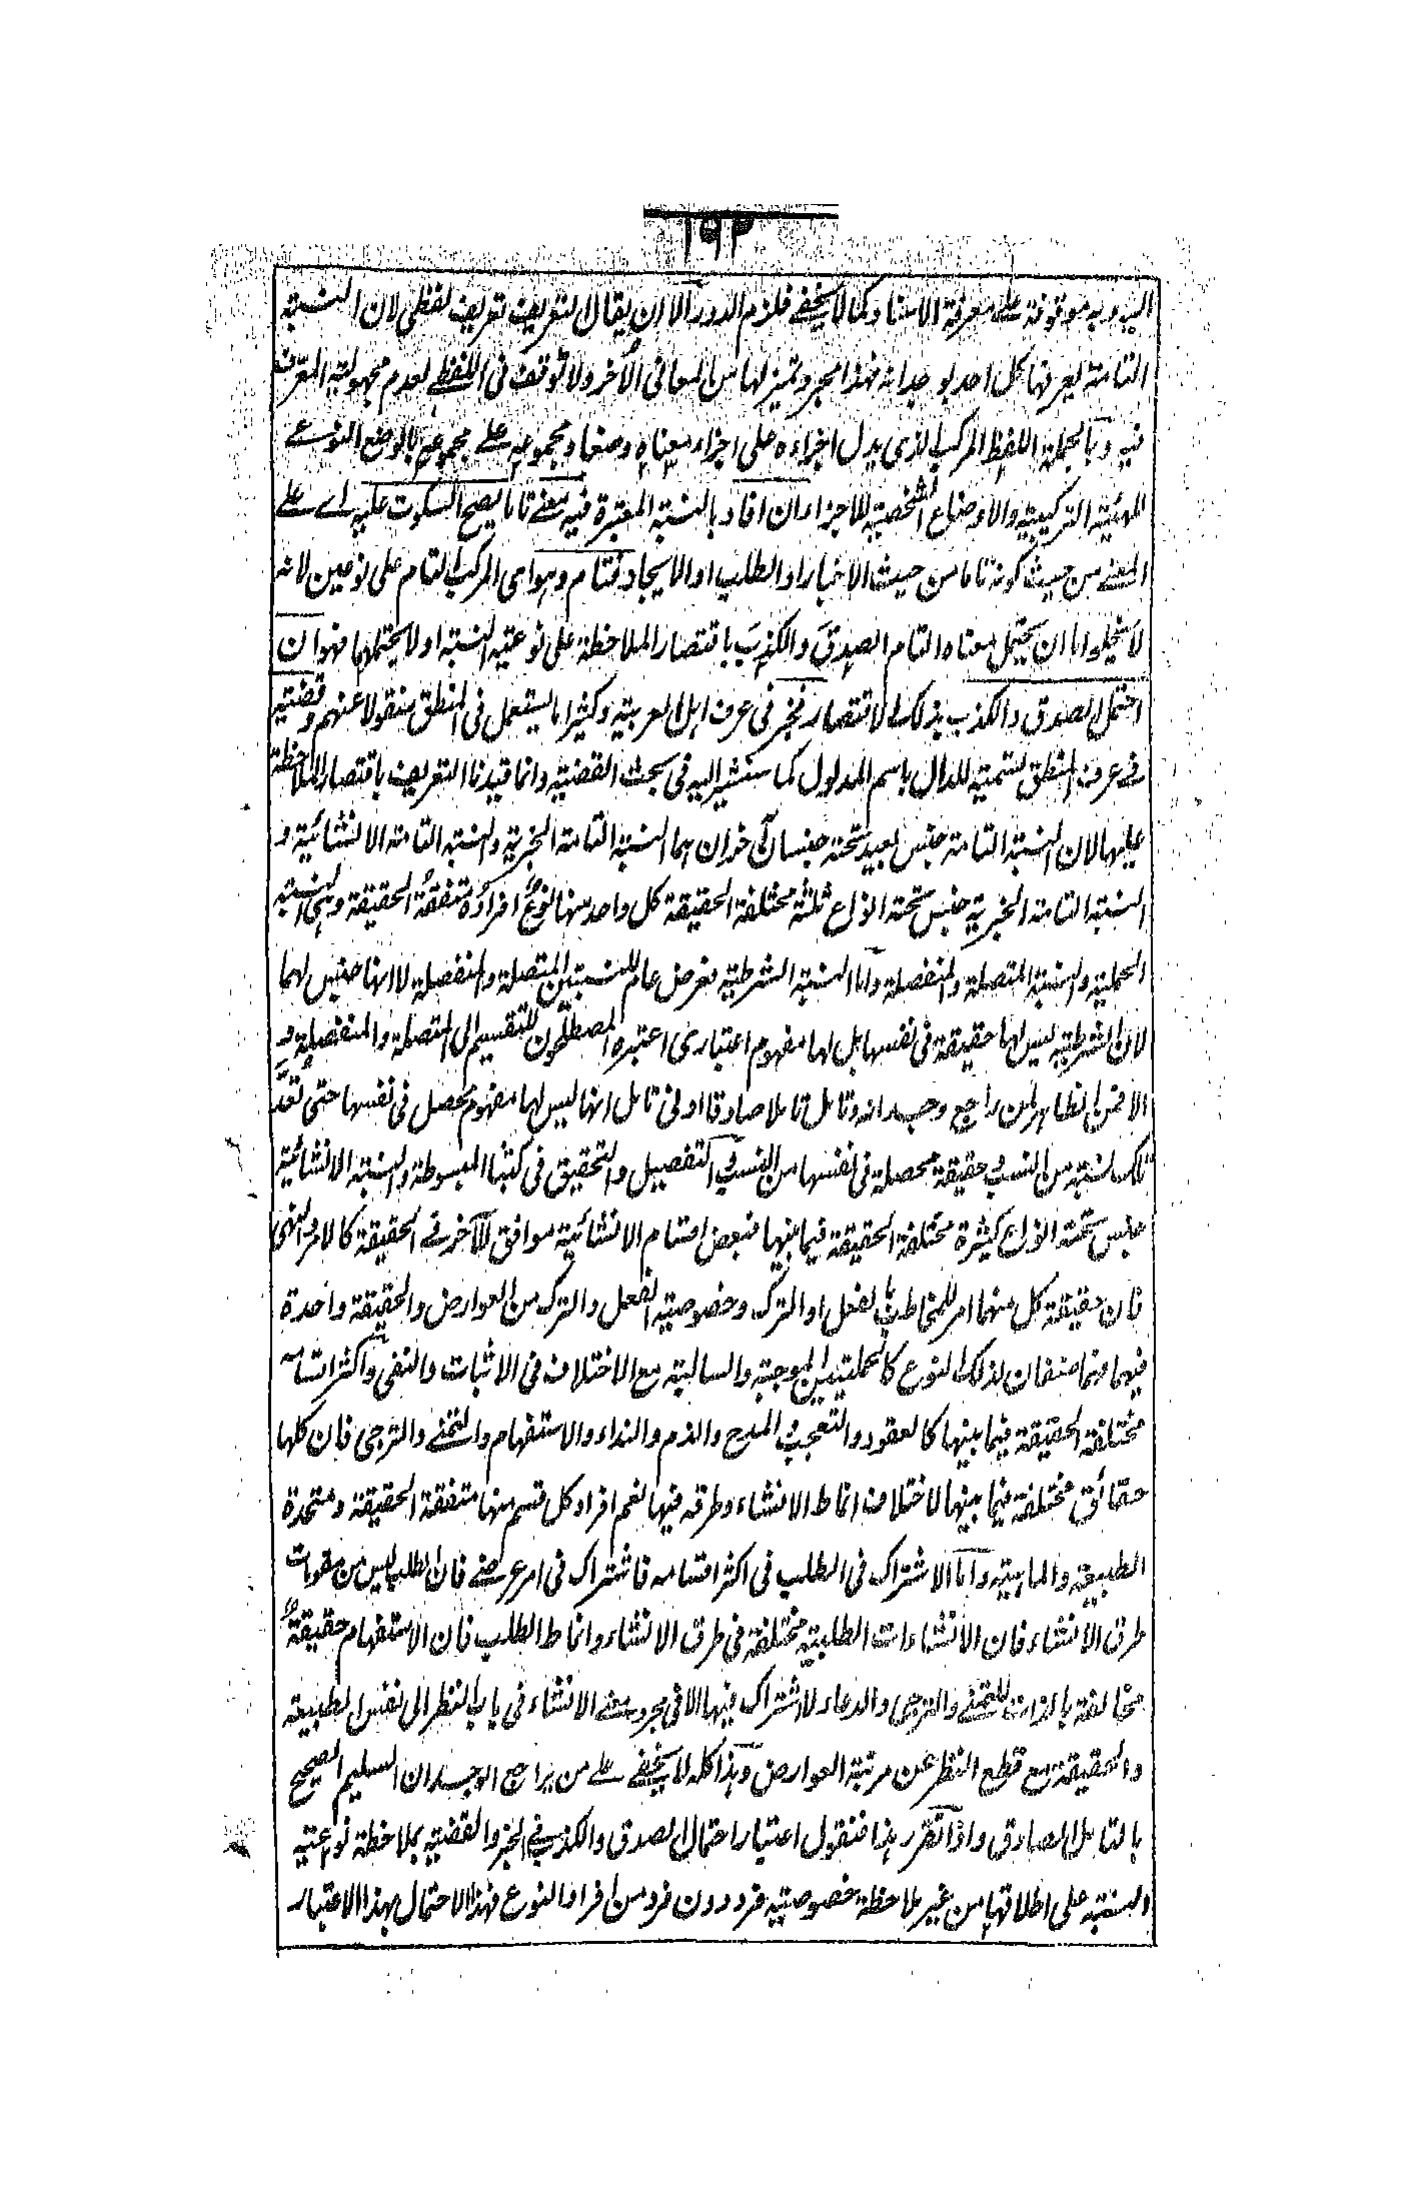 ١٩٢
اليه وبه موقوفة على معرفة الاسناد كما لا يخفى فلزم الدور الا ان يقال التعريف تعريف لفظي لان النسبة
التامة يعرفها كل احد بوجدانه فهذا مجرد تميز لها من المعاني الأخر ولا توقف في اللفظي لعدم مجهولية المعرف
فيه وبالجملة اللفظ المركب الذي يدل اجزاءه على اجزاء معناه وضعا ومجموعه على مجموعه بالوضع النوعي
للهيئة التركيبية والاوضاع الشخصية للاجزاء ان افاد بالنسبة المعتبرة فيه معنى تاما يصح السكوت عليه اى على
المعنى من حيث كونه تاما من حيث الاخبار او الطلب او الايجاد فتام وهو اى المركب التام على نوعين لانه
لا يخلو اما ان يحتمل معناه التام الصدق والكذب باقتصار الملاحظة على نوعية النسبة او لا يحتملهما فهو ان
احتمل الصدق والكذب بذلك الاقتصار فخبر في عرف اهل العربية وكثيرا ما يستعمل في المنطق منقولا عنهم وقضية
في عرف المنطق لتسمية للدال باسم المدلول كما سنشير اليه في بحث القضية وانما قيدنا التعريف باقتصار الملاحظة
عليها لان النسبة التامة جنس بعيد تحته جنسان آخران هما النسبة التامة الخبرية والنسبة التامة الانشائية و
النسبة التامة الخبرية جنس تحته انواع ثلثة مختلفة الحقيقة كل واحد منها نوع افراده متفقة الحقيقة وهي النسبة
الحملية والنسبة المتصلة والمنفصلة واما النسبة الشرطية فعرض عام للنسبتين المتصلة والمنفصلة لا انها جنس لهما
لان الشرطية ليس لها حقيقة في نفسها بل لها مفهوم اعتبارى اعتبره المصطلحون للتقسيم الى المتصلة والمنفصلة و
الا فمن الظاهر لمن راجع وجدانه وتامل تاملا صادقا اولى تامل انها ليس لها مفهوم محصل في نفسها حتى تعد
تلك النسبة من النسب حقيقة محصلة في نفسها من النسب والتفصيل والتحقيق في كتبنا المبسوطة والنسبة الانشائية
جنس تحته انواع كثيرة مختلفة الحقيقة فيما بينها فبعض اقسام الانشائية موافق للآخر في الحقيقة كالامر والنهى
فان حقيقة كل منهما امر للمخاطب بالفعل او الترك وخصوصية الفعل والترك من العوارض والحقيقة واحدة
فيهما فهما صنفان لذلك النوع كالحمليتين الموجبة والسالبة مع الاختلاف في الاثبات والنفى واكثر اقسامه
مختلفة الحقيقة فيما بينها كالعقود والتعجب والمدح والذم والنداء والاستفهام والتمنى والترجى فان كلها
حقائق مختلفة فيما بينها لاختلاف انماط الانشاء وطرقه فيها نعم افراد كل قسم منها متفقة الحقيقة ومتحدة
الطبيعة والماهية واما الاشتراك في الطلب في اكثر اقسامه فاشتراك في امر عرضى فان الطلب ليس من مقومات
طرق الانشاء فان الانشاءات الطلبية مختلفة في طرق الانشاء وانماط الطلب فان الاستفهام حقيقة
مخالفة بالذات للتمنى والترجى والدعاء لا اشتراك فيها الا في مجرد معنى الانشاء في باب النظر الى نفس الطبيعة
والحقيقة مع قطع النظر عن مرتبة العوارض وهذا كله لا يخفى على من يراجع الوجدان السليم الصحيح
بالتامل الصادق واذا تقرر هذا فنقول اعتبار احتمال الصدق والكذب في الخبر والقضية بملاحظة نوعية
النسبة على اطلاقها من غير ملاحظة خصوصية فرد دون فرد من افراد النوع فهذا الاحتمال بهذا الاعتبار